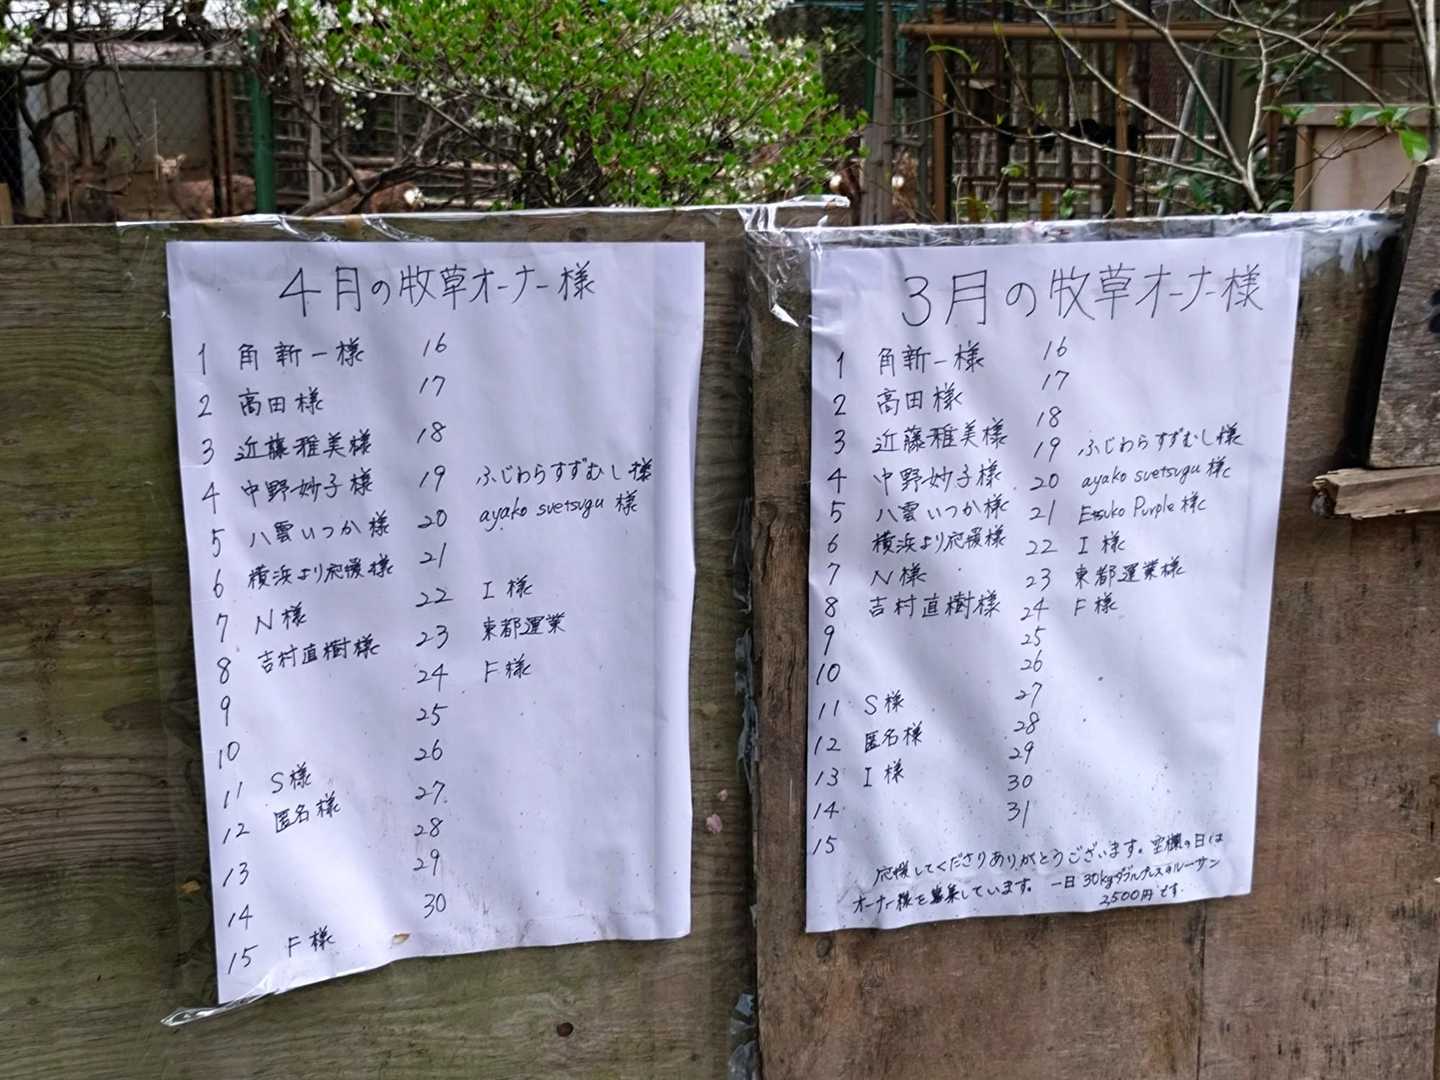 4月の牧草オーナー様
1 角新一様
2 高田様
3 近藤雅美様
4 中野妙子様
5 八雲いつか様
6 横浜より応援様
7 N様
8 吉村直樹様
9
10
11 S様
12 匿名様
13
14
15 F様
16
17
18
19 ふじわらすずむし様
20 ayako suetsugu 様
21
22 I様
23 東都運業
24 F様
25
26
27
28
29
30
3月の牧草オーナー様
1 角新一様
2 高田様
3 近藤雅美様
4 中野妙子様
5 八雲いつか様
6 横浜より応援様
7 N様
8 吉村直樹様
9
10
11 S様
12 匿名様
13 I様
14
15
16
17
18
19 ふじわらすずむし様
20 ayako suetsugu 様
21 Etsuko Purple 様
22 I様
23 東都運業様
24 F様
25
26
27
28
29
30
31
応援してくださりありがとうございます。空欄の日は
オーナー様を募集しています。一日30kgダブルプレスのルーサン
2,500円です